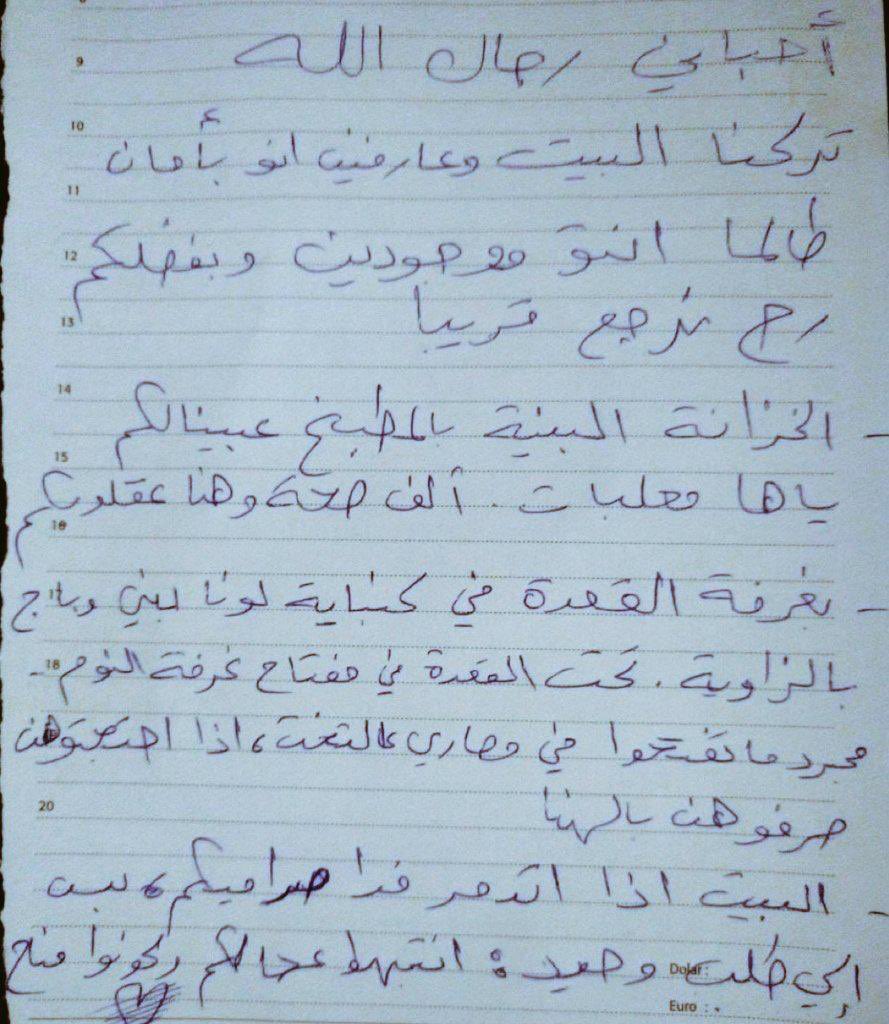 أحبابي رجال الله
تركنا البيت وعارفين انو بأمان
طالما انتو موجودين وبفضلكم
رح نرجع قريبا
- الخزانة البنية بالمطبخ عبينالكم
ياها معلبات. ألف صحة وهنا عقلوبكم
- بغرفة القعدة في كنباية لونا بني وباج
بالزاوية. تحت القعدة في مفتاح غرفة النوم.
مجرد ما تفتحوا في مصاري عالتخت، اذا احتجتوهن
صرفوهن بالهنا
- البيت اذا اتدمر فدا صراميكم، بس
إلي طلب وحيد: انتبهوا عحالكم وكونوا مناح
9
10
11
12
13
14
15
16
18
20
Dolar :
Euro :